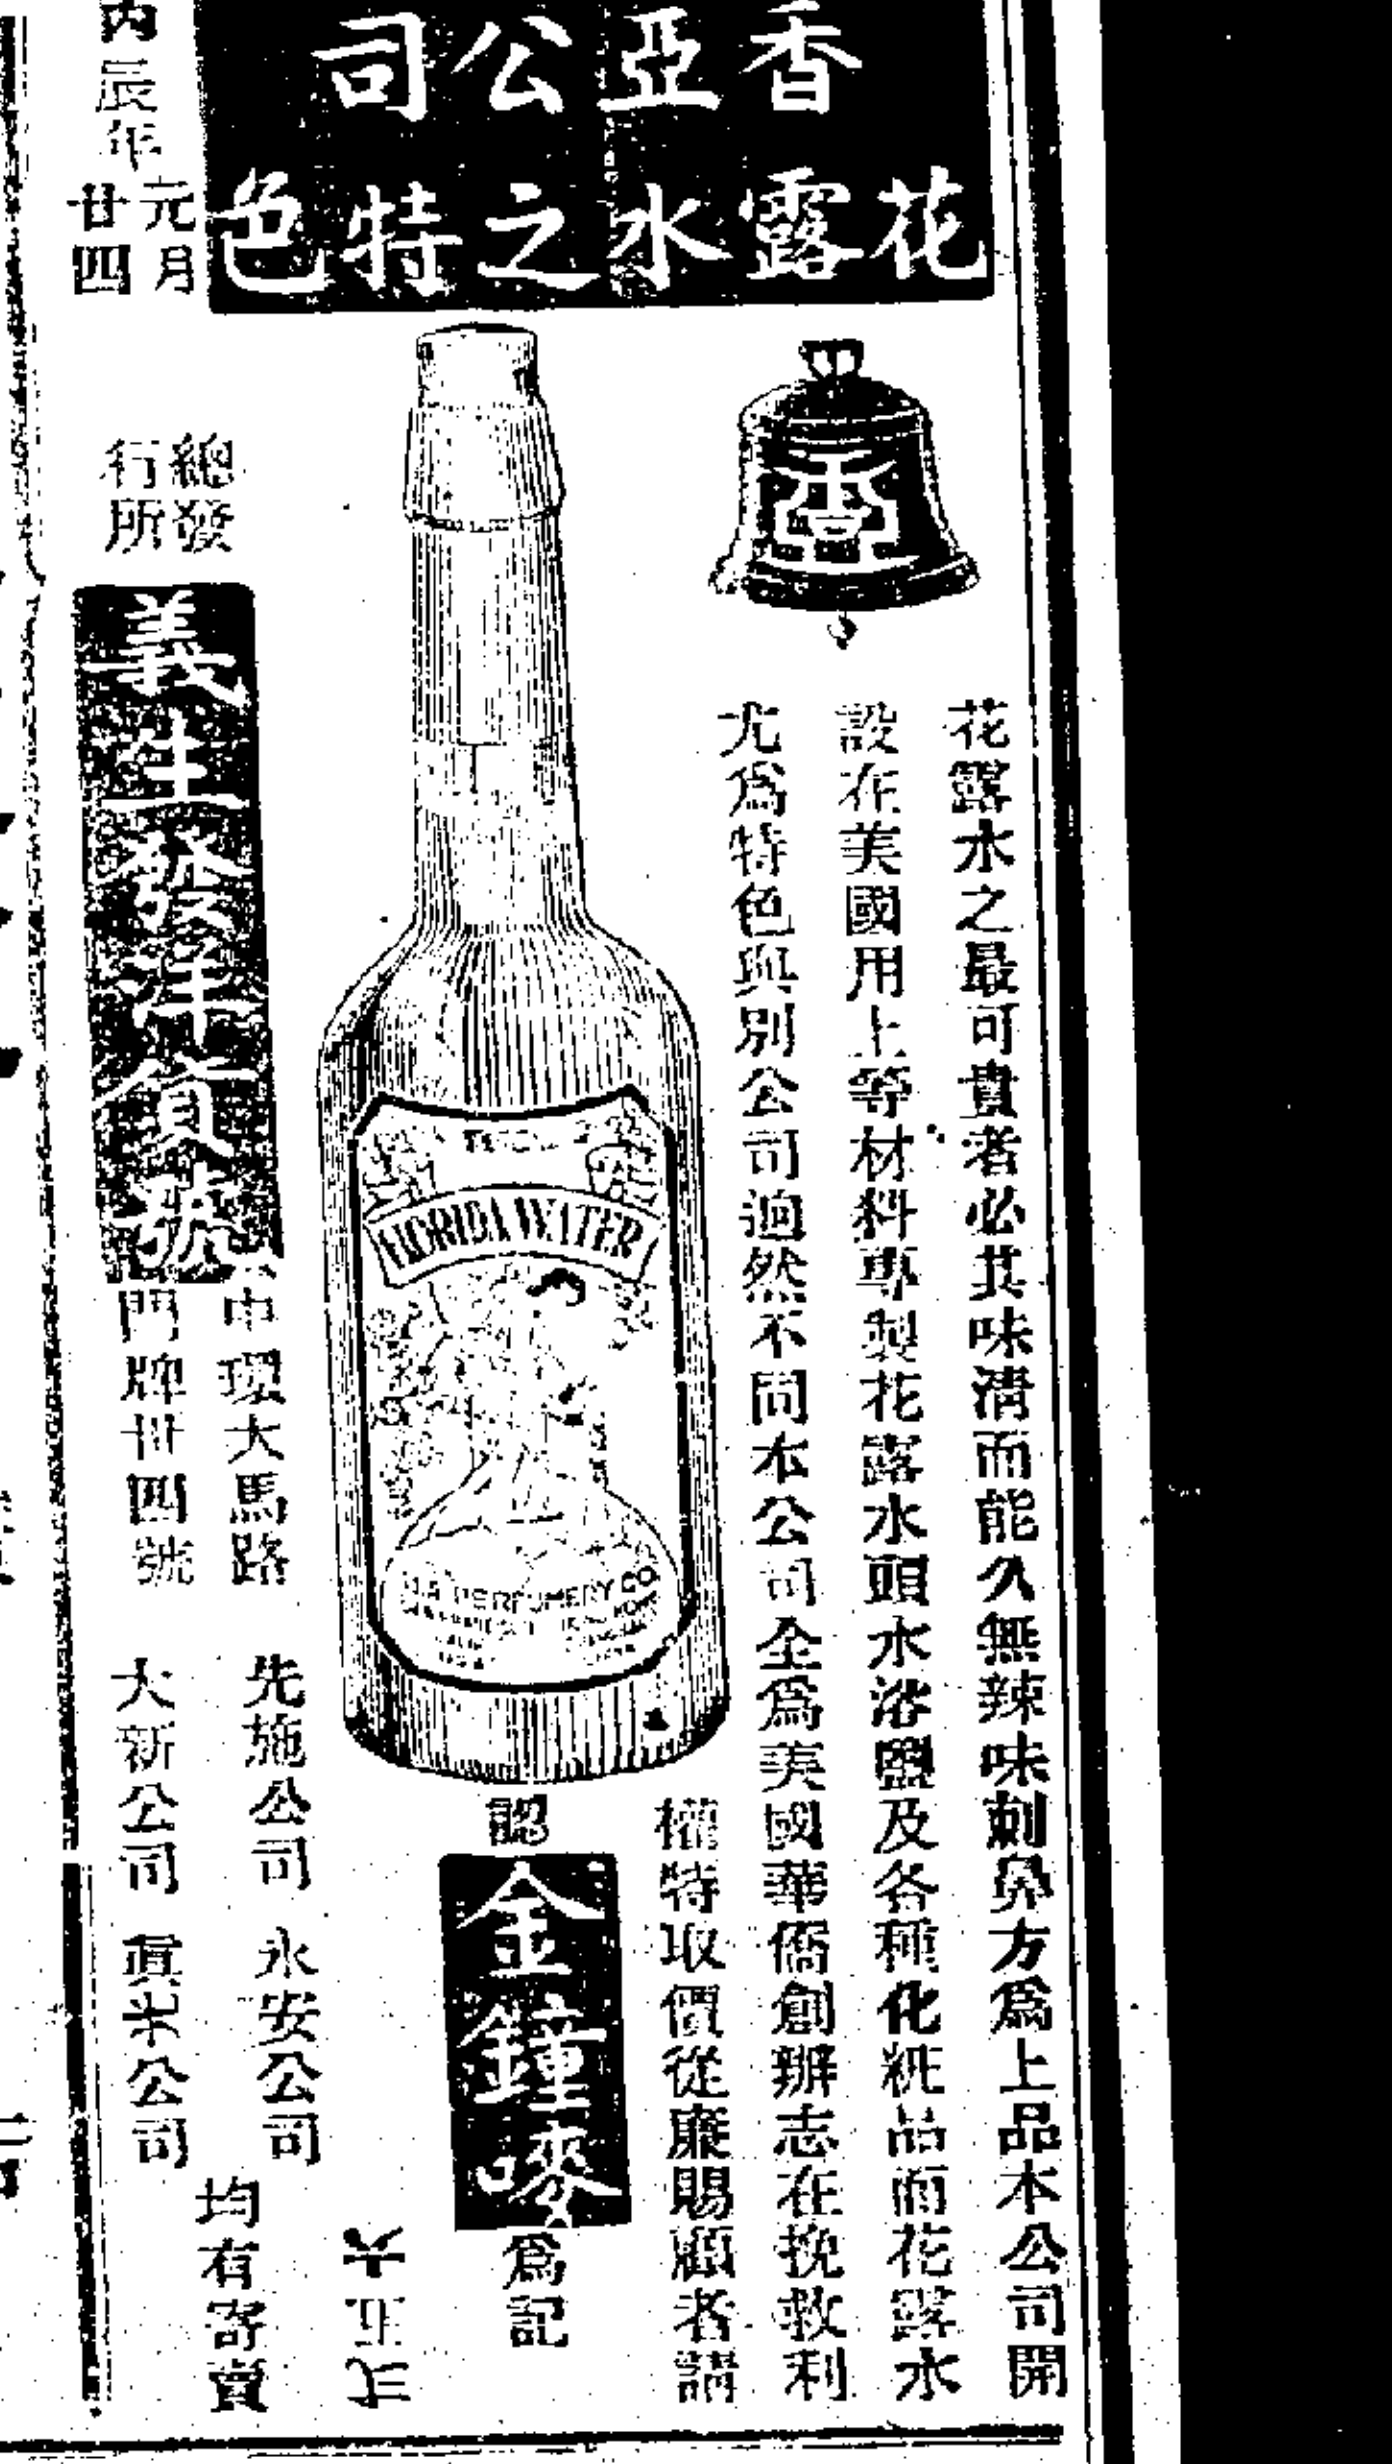 香亞公司
花露水之特色
香
花露水之最可貴者必其味清而能久無辣味刺鼻方爲上品本公司開
設在美國用上等材料專製花露水頭水浴盬及各種化粧品而花露水
尤爲特色與別公司迥然不同本公司全爲美國華僑創辦志在挽救利
權特取價從廉賜顧者請
認
金鐘嘜
爲記
FLORIDA WATER
PERFUMERY CO
總發
行所
義生發洋貨號
中環大馬路
門牌卅四號
先施公司 永安公司
大新公司 眞光公司
均有寄賣
丙辰年
元月
廿四